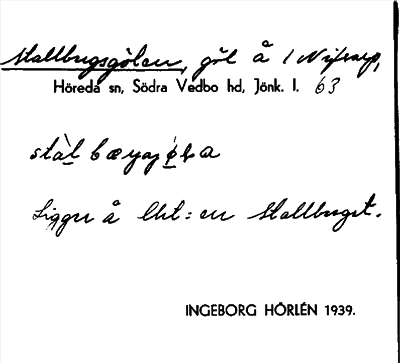 Stallbergsgölen, göl å 1 Nifarp,
Höreda sn, Södra Vedbo hd, Jönk. l. 63
Ligger å Utt: en Stallberget.
INGEBORG HÖRLÉN 1939.